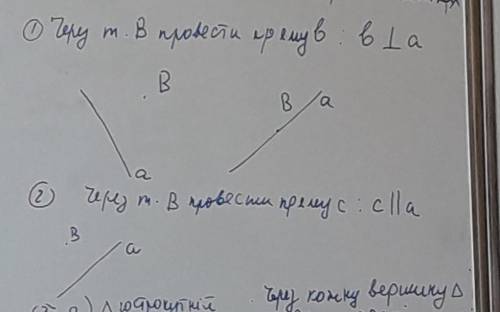 ① Через т. В провести пряму в : в ⊥ а
В
В а
а
② Через т. В провести пряму с : с || а
В
а
а) △ гострокутній
Через кожну вершину △